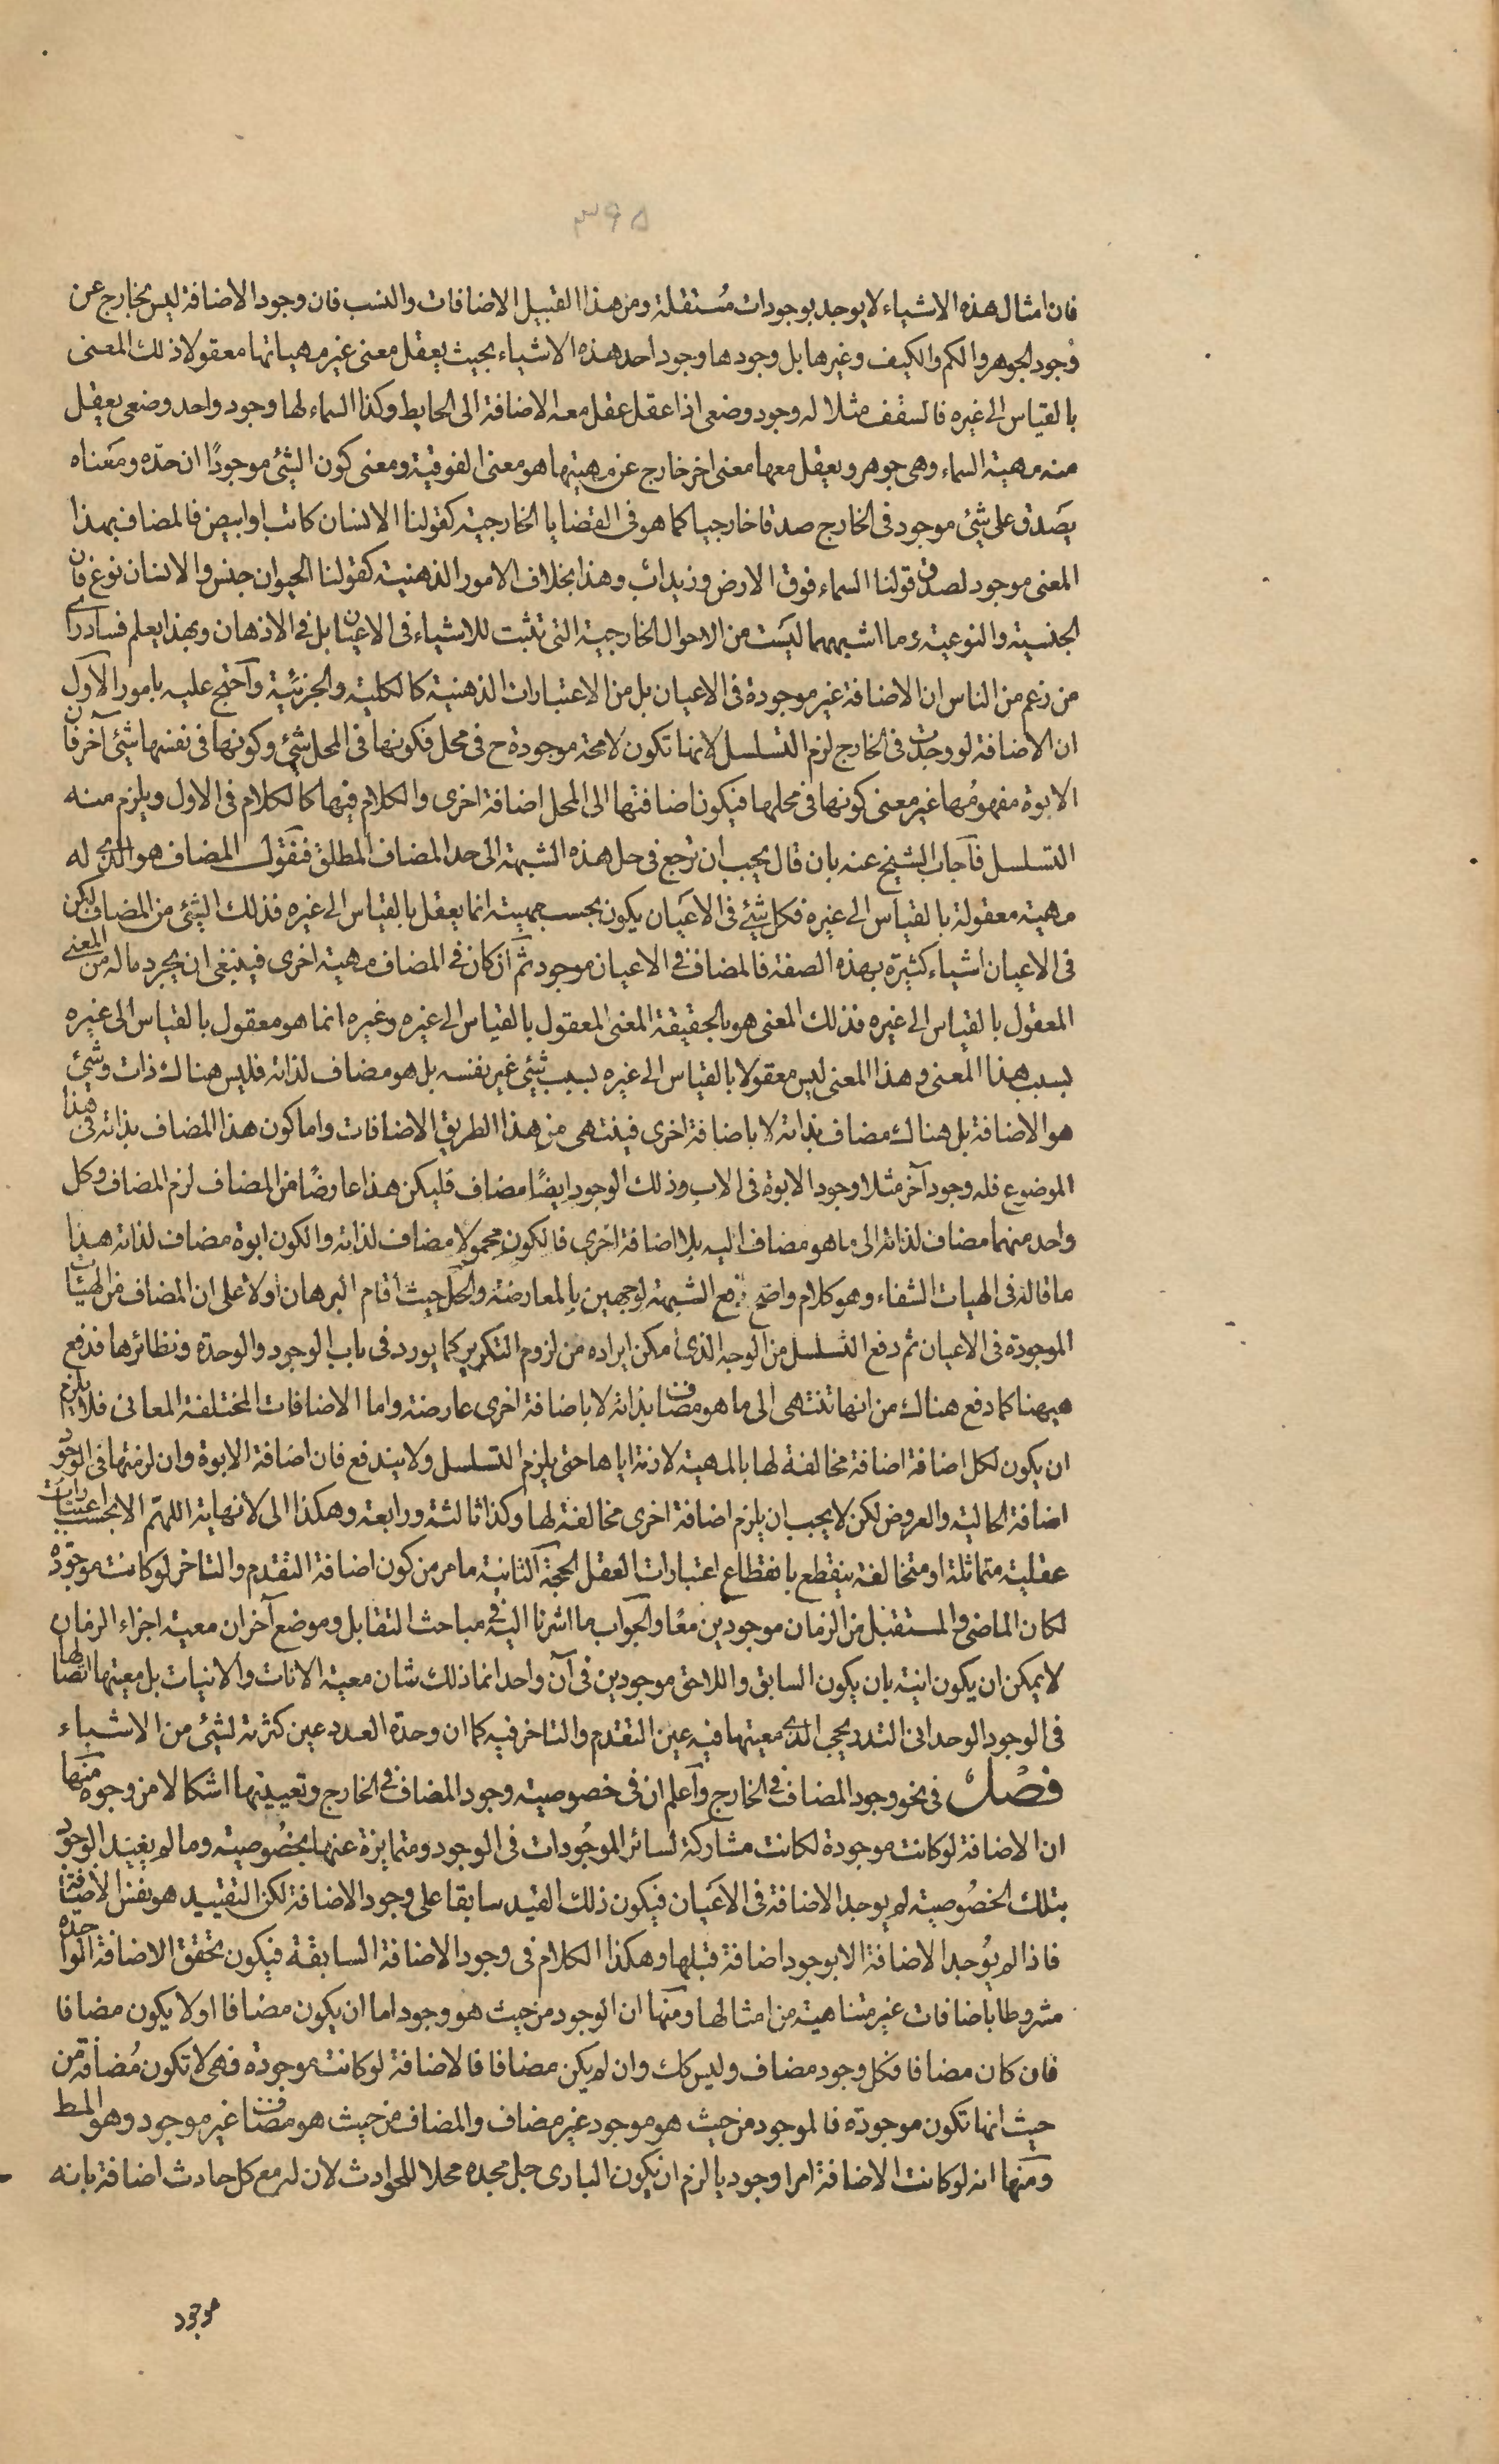 ٣٩٥
فان امثال هذه الاشياء لا يوجد بوجودات مُستقلة ومن هذا القبيل الاضافات والنسب فان وجود الاضافة ليس بخارج عن
وُجود الجوهر والكم والكيف وغيرها بل وجودها وجود احد هذه الاشياء بحيث يعقل معنى غير مهياتها معقولا ذلك المعنى
بالقياس الى غيره فالسقف مثلا له وجود وضعى اذا عقل عقل معه الاضافة الى الحايط وكذا السماء لها وجود واحد وضعى يعقل
منه مهية السماء وهى جوهر ويعقل معها معنى اخر خارج عن مهيتها هو معنى الفوقية ومعنى كون الشئ موجودًا ان حدّه ومَعناه
يصَدق على شئ موجود فى الخارج صدقا خارجيا كما هو فى القضايا الخارجية كقولنا الانسان كاتب او ابيض فالمضاف بهذا
المعنى موجود لصدق قولنا السماء فوق الارض وزيد اب وهذا بخلاف الامور الذهنية كقولنا الحيوان جنس والانسان نوع فان
الجنسية والنوعية وما اشبههما ليسَت من الاحوال الخارجية التى تثبت للاشياء فى الاعيان بل فى الاذهان وبهذا يعلم فساد راى
من زعم من الناس ان الاضافة غير موجودة فى الاعيان بل من الاعتبارات الذهنية كالكلية والجزئية واحتج عليه بامور الاول
ان الاضافة لو وجدت فى الخارج لزم التسلسل لانها تكون لا محة موجودة ح فى محل فكونها فى المحل شئ وكونها فى نفسها شئ آخر فان
الابوة مفهومُها غير معنى كونها فى محلها فيكون اضافتها الى المحل اضافة اخرى والكلام فيها كالكلام فى الاول ويلزم منه
التسلسل فآجاب الشيخ عنه بان قال يجب ان نرجع فى حل هذه الشبهة الى حد المضاف المطلق فنقول المضاف هو الذى له
مهية معقولة بالقياس الى غيره فكل شئ فى الاعَيان يكون بحسب مهيته انما يعقل بالقياس الى غيره فذلك الشئ من المضاف لكن
فى الاعيان اشياء كثيرة بهذه الصفة فالمضاف فى الاعيان موجود ثم ان كان فى المضاف مهية اخرى فينبغى ان يجرد ماله من المعنى
المعقول بالقياس الى غيره فذلك المعنى هو بالحقيقة المعنى المعقول بالقياس الى غيره وغيره انما هو معقول بالقياس الى غيره
بسبب هذا المعنى وهذا المعنى ليس معقولا بالقياس الى غيره بسبب شئ غير نفسه بل هو مضاف لذاته فليس هناك ذات وشئ
هو الاضافة بل هناك مضاف بذاته لا باضافة اخرى فينتهى من هذا الطريق الاضافات واما كون هذا المضاف بذاته فى هذا
الموضوع فله وجود آخر مثلا وجود الابوة فى الاب وذلك الوجود ايضًا مضاف فليكن هذا عارضًا من المضاف لزم المضاف وكل
واحد منهما مضاف لذاته الى ما هو مضاف اليه بلا اضافة اخرى فالكون محمولا مضاف لذاته والكون ابوة مضاف لذاته هذا
ما قاله فى الهيات الشفاء وهو كلام واضح دفع الشبهة لوجهين بالمعارضة والحل حيث اقام البرهان اولا على ان المضاف من الهيئات
الموجودة فى الاعيان ثم دفع التسلسل من الوجه الذى امكن ايراده من لزوم التكرير كما يورد فى باب الوجود والوحدة ونظائرها فدفع
ههنا كما دفع هناك من انها تنتهى الى ما هو مضاف بذاته لا باضافة اخرى عارضة واما الاضافات المختلفة المعانى فلا يلزم
ان يكون لكل اضافة اضافة مخالفة لها بالمهية لازمة اياها حتى يلزم التسلسل ولا يندفع فان اضافة الابوة وان لزمتها فى الوجود
اضافة الحالية والعروض لكن لا يجب ان يلزم اضافة اخرى مخالفة لها وكذا ثالثة ورابعة وهكذا الى لا نهاية اللهمّ الا بحسب اعتبارات
عقلية متماثلة او متخالفة ينقطع بانقطاع اعتبارات العقل الحجة الثانية ما مر من كون اضافة التقدم والتاخر لو كانت موجودة
لكان الماضى والمستقبل من الزمان موجودين معًا والجواب ما اشرنا اليه فى مباحث التقابل وموضع آخر ان معية اجزاء الزمان
لا يمكن ان يكون انية بان يكون السابق واللاحق موجودين فى آن واحد انما ذلك شان معية الانات والانيات بل معيتها اتصالها
فى الوجود الوحدانى التدريجى الذى معيتها فيه عين التقدم والتاخر فيه كما ان وحدة العدد عين كثرته لشئ من الاشياء
فصْل فى نحو وجود المضاف فى الخارج وآعلم ان فى خصوصية وجود المضاف فى الخارج وتعيينها اشكالا من وجوه منها
ان الاضافة لو كانت موجودة لكانت مشاركة لسائر الموجُودات فى الوجود ومتمايزة عنها بخصُوصية وما لم يقيد الوجود
بتلك الخصُوصية لم يوجد الاضافة فى الاعَيان فيكون ذلك القيد سابقا على وجود الاضافة لكن التقييد هو نفس الاضافة
فاذا لم يُوجد الاضافة الا بوجود اضافة قبلها وهكذا الكلام فى وجود الاضافة السابقة فيكون تحقق الاضافة الواحدة
مشروطا باضافات غير متناهية من امثالها ومنها ان الوجود من حيث هو وجود اما ان يكون مضافا او لا يكون مضافا
فان كان مضافا فكل وجود مضاف وليس كك وان لم يكن مضافا فالاضافة لو كانت موجودة فهى لا تكون مُضافة من
حيث انها تكون موجودة فالموجود من حيث هو موجود غير مضاف والمضاف من حيث هو مضاف غير موجود وهو المط
ومنها انه لو كانت الاضافة امرا وجوديا لزم ان يكون البارى جل مجده محلا للحوادث لان له مع كل حادث اضافة بانه
موجود